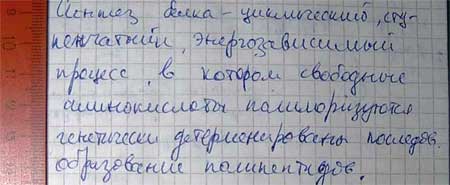 Синтез белка - циклический, сту-
пенчатый, энергозависимый
процесс, в котором свободные
аминокислоты полимеризуются
генетически детерминированы последов.
образование полипептидов.